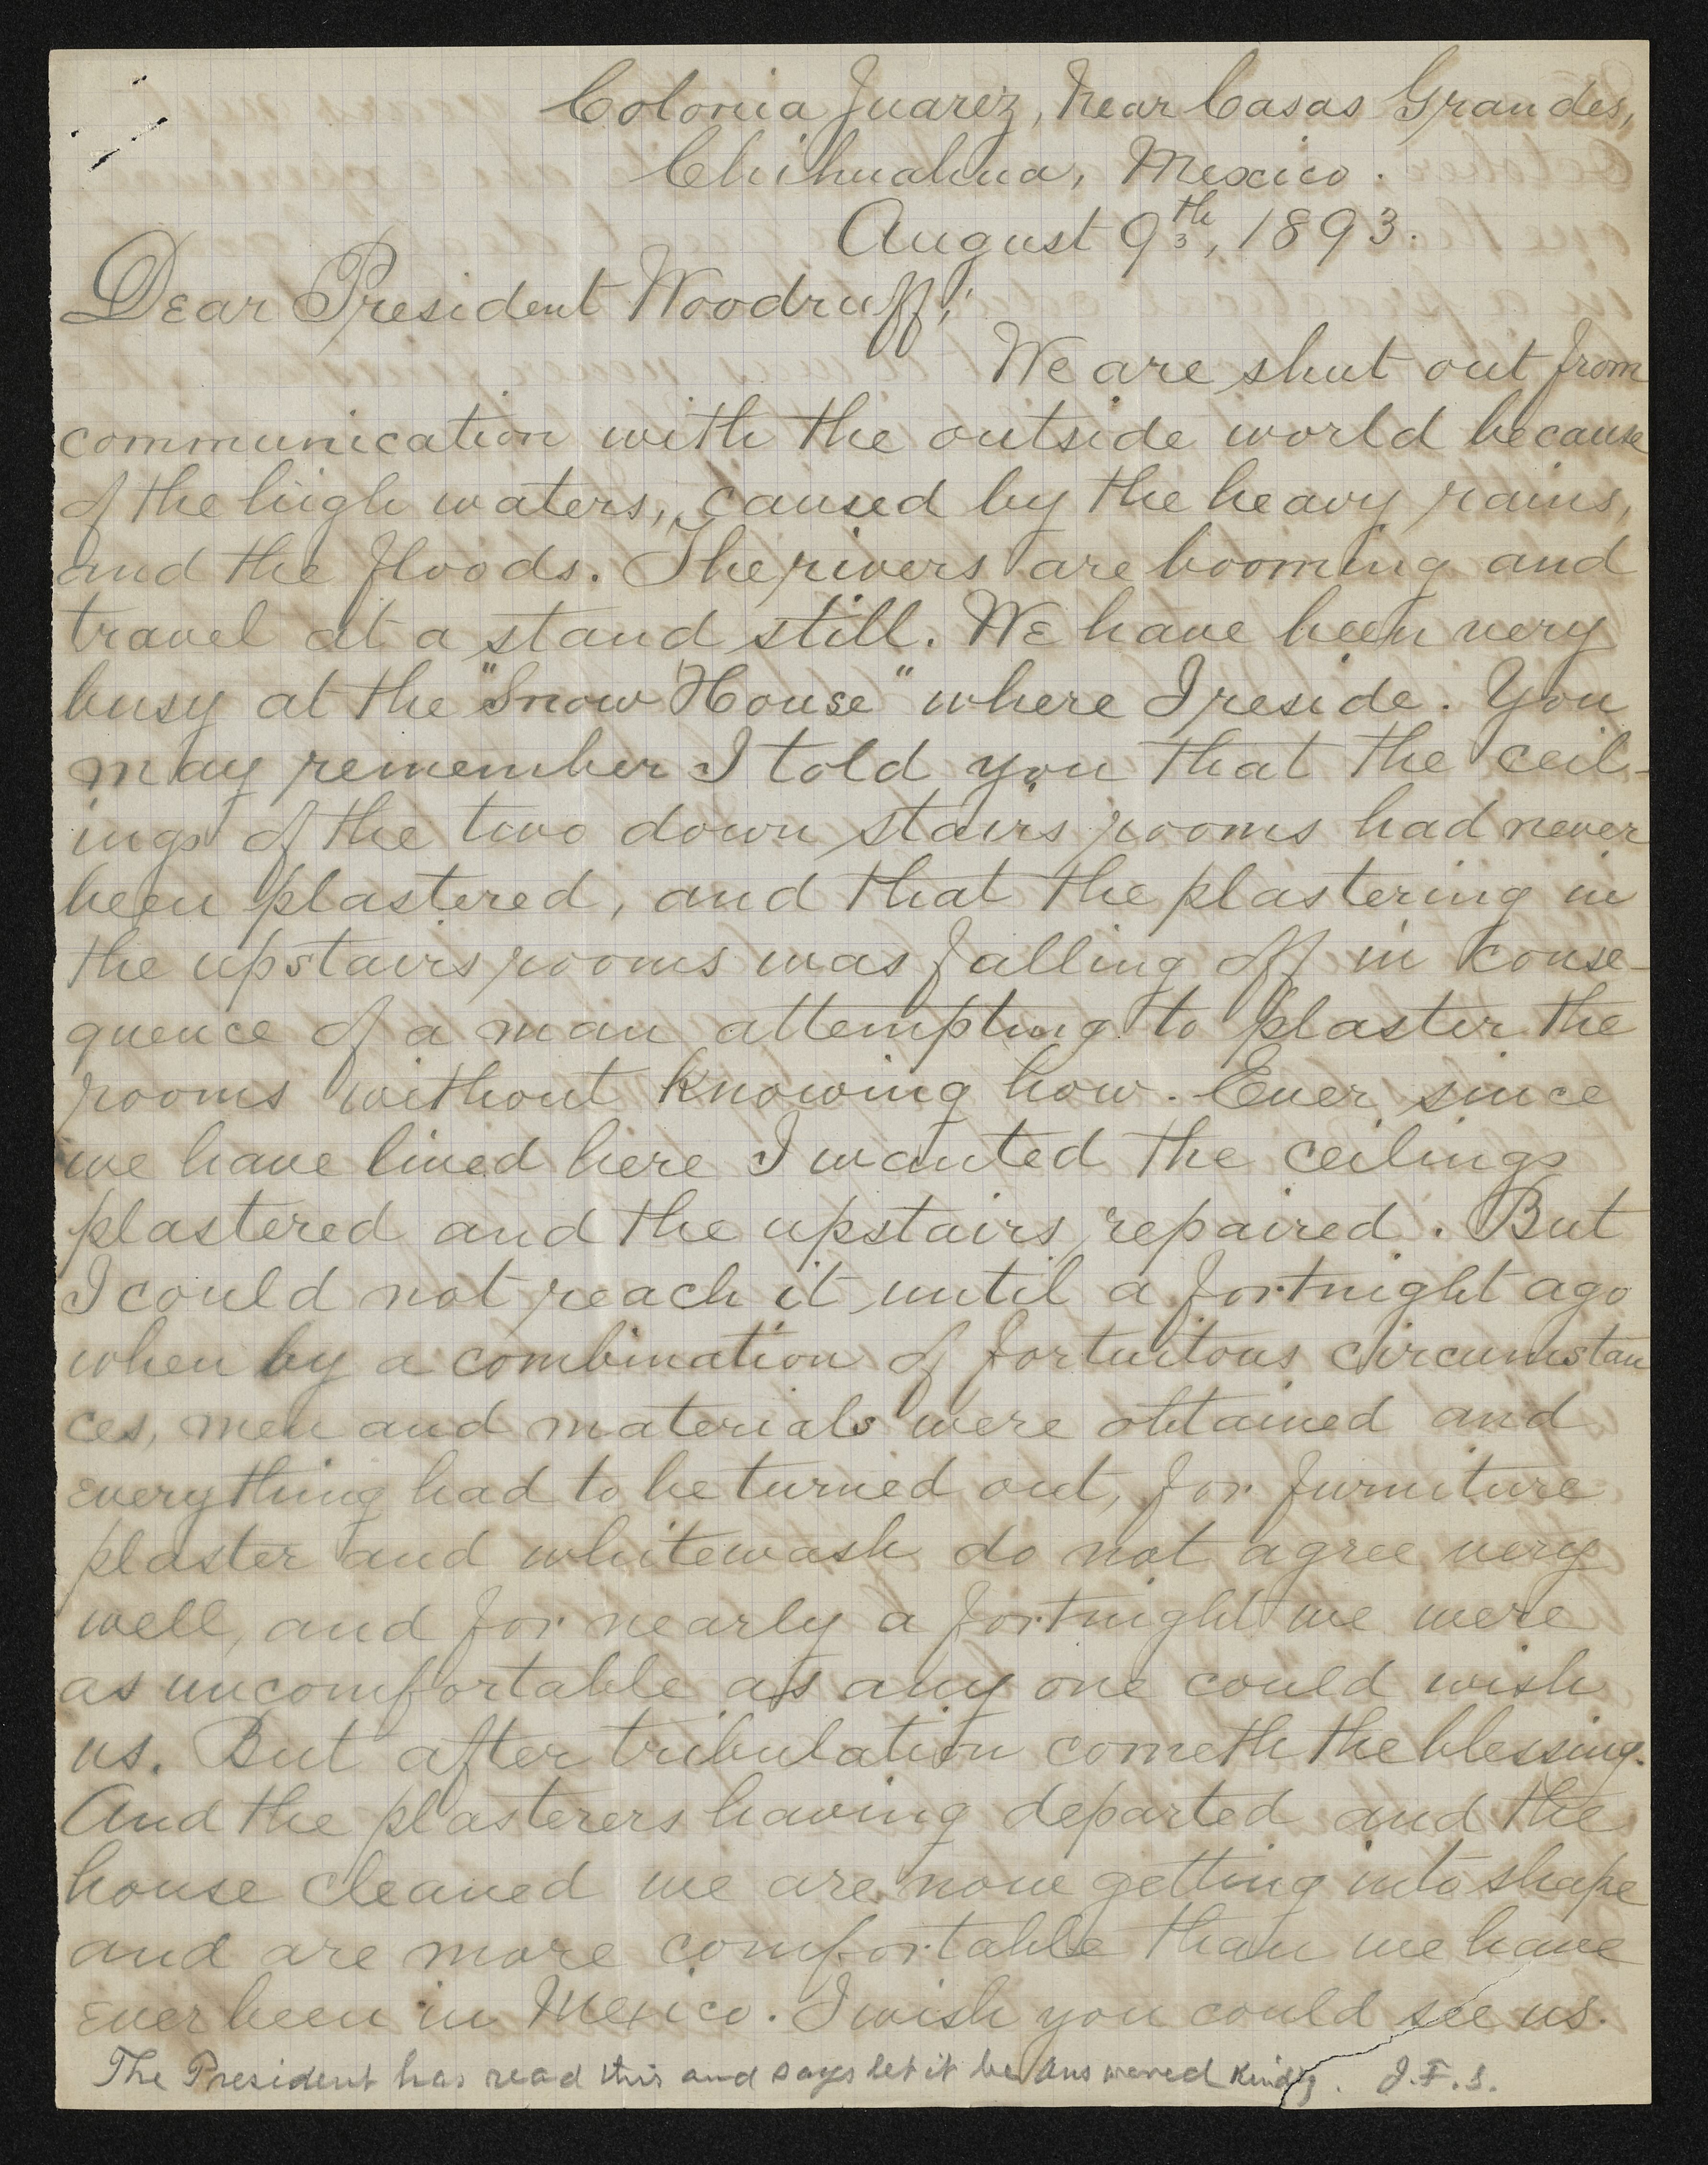 Colonia Juarez, Near Casas Grandes,
Chihuahua, Mexico.
August 9th, 1893.
Dear President Woodruff;
We are shut out from
communication with the outside world because
of the high waters, caused by the heavy rains,
and the floods. The rivers are booming and
travel at a stand still. We have been very
busy at the "Snow House" where I reside. You
may remember I told you that the ceil-
ings of the two down stairs rooms had never
been plastered, and that the plastering in
the upstairs rooms was falling off in conse-
quence of a man attempting to plaster the
rooms without knowing how. Ever since
we have lived here I wanted the ceilings
plastered and the upstairs repaired. But
I could not reach it until a fortnight ago
when by a combination of fortuitous circumstan
ces, men and materials were obtained and
everything had to be turned out, for furniture
plaster and whitewash do not agree very
well, and for nearly a fortnight we were
as uncomfortable as any one could wish
us. But after tribulation cometh the blessing.
And the plasterers having departed and the
house cleaned we are now getting into shape
and are more comfortable than we have
ever been in Mexico. I wish you could see us.
The President has read this and says let it be answered kindly. J.F.S.